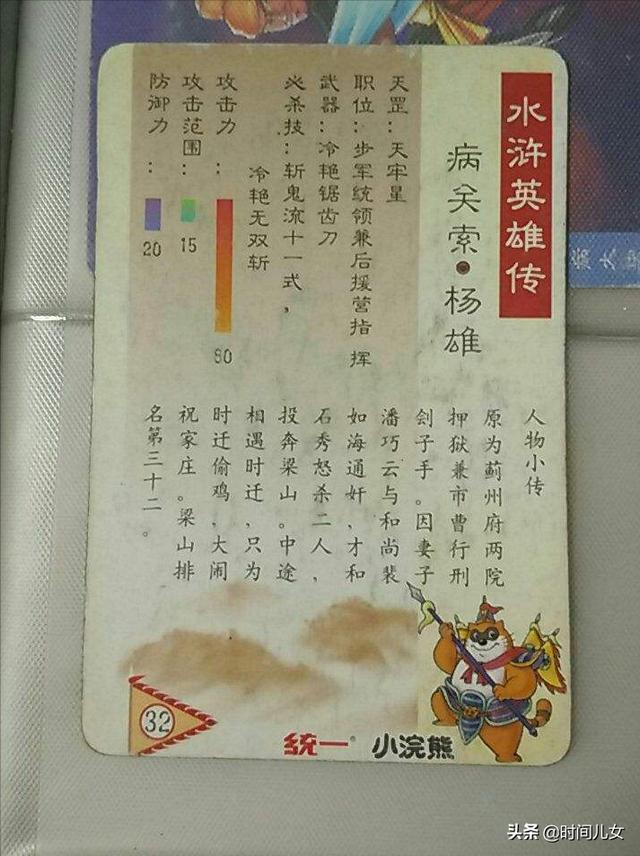 水浒英雄传
病关索·杨雄
天罡：天牢星
职位：步军统领兼后援营指挥
武器：冷艳锯齿刀
必杀技：斩鬼流十一式，
冷艳无双斩
攻击力：
80
攻击范围：
15
防御力：
20
人物小传
原为蓟州府两院
押狱兼市曹行刑
刽子手。因妻子
潘巧云与和尚裴
如海通奸，才和
石秀怒杀二人，
投奔梁山。中途
相遇时迁，只为
时迁偷鸡，大闹
祝家庄。梁山排
名第三十二。
32
统一 小浣熊
头条 @时间儿女